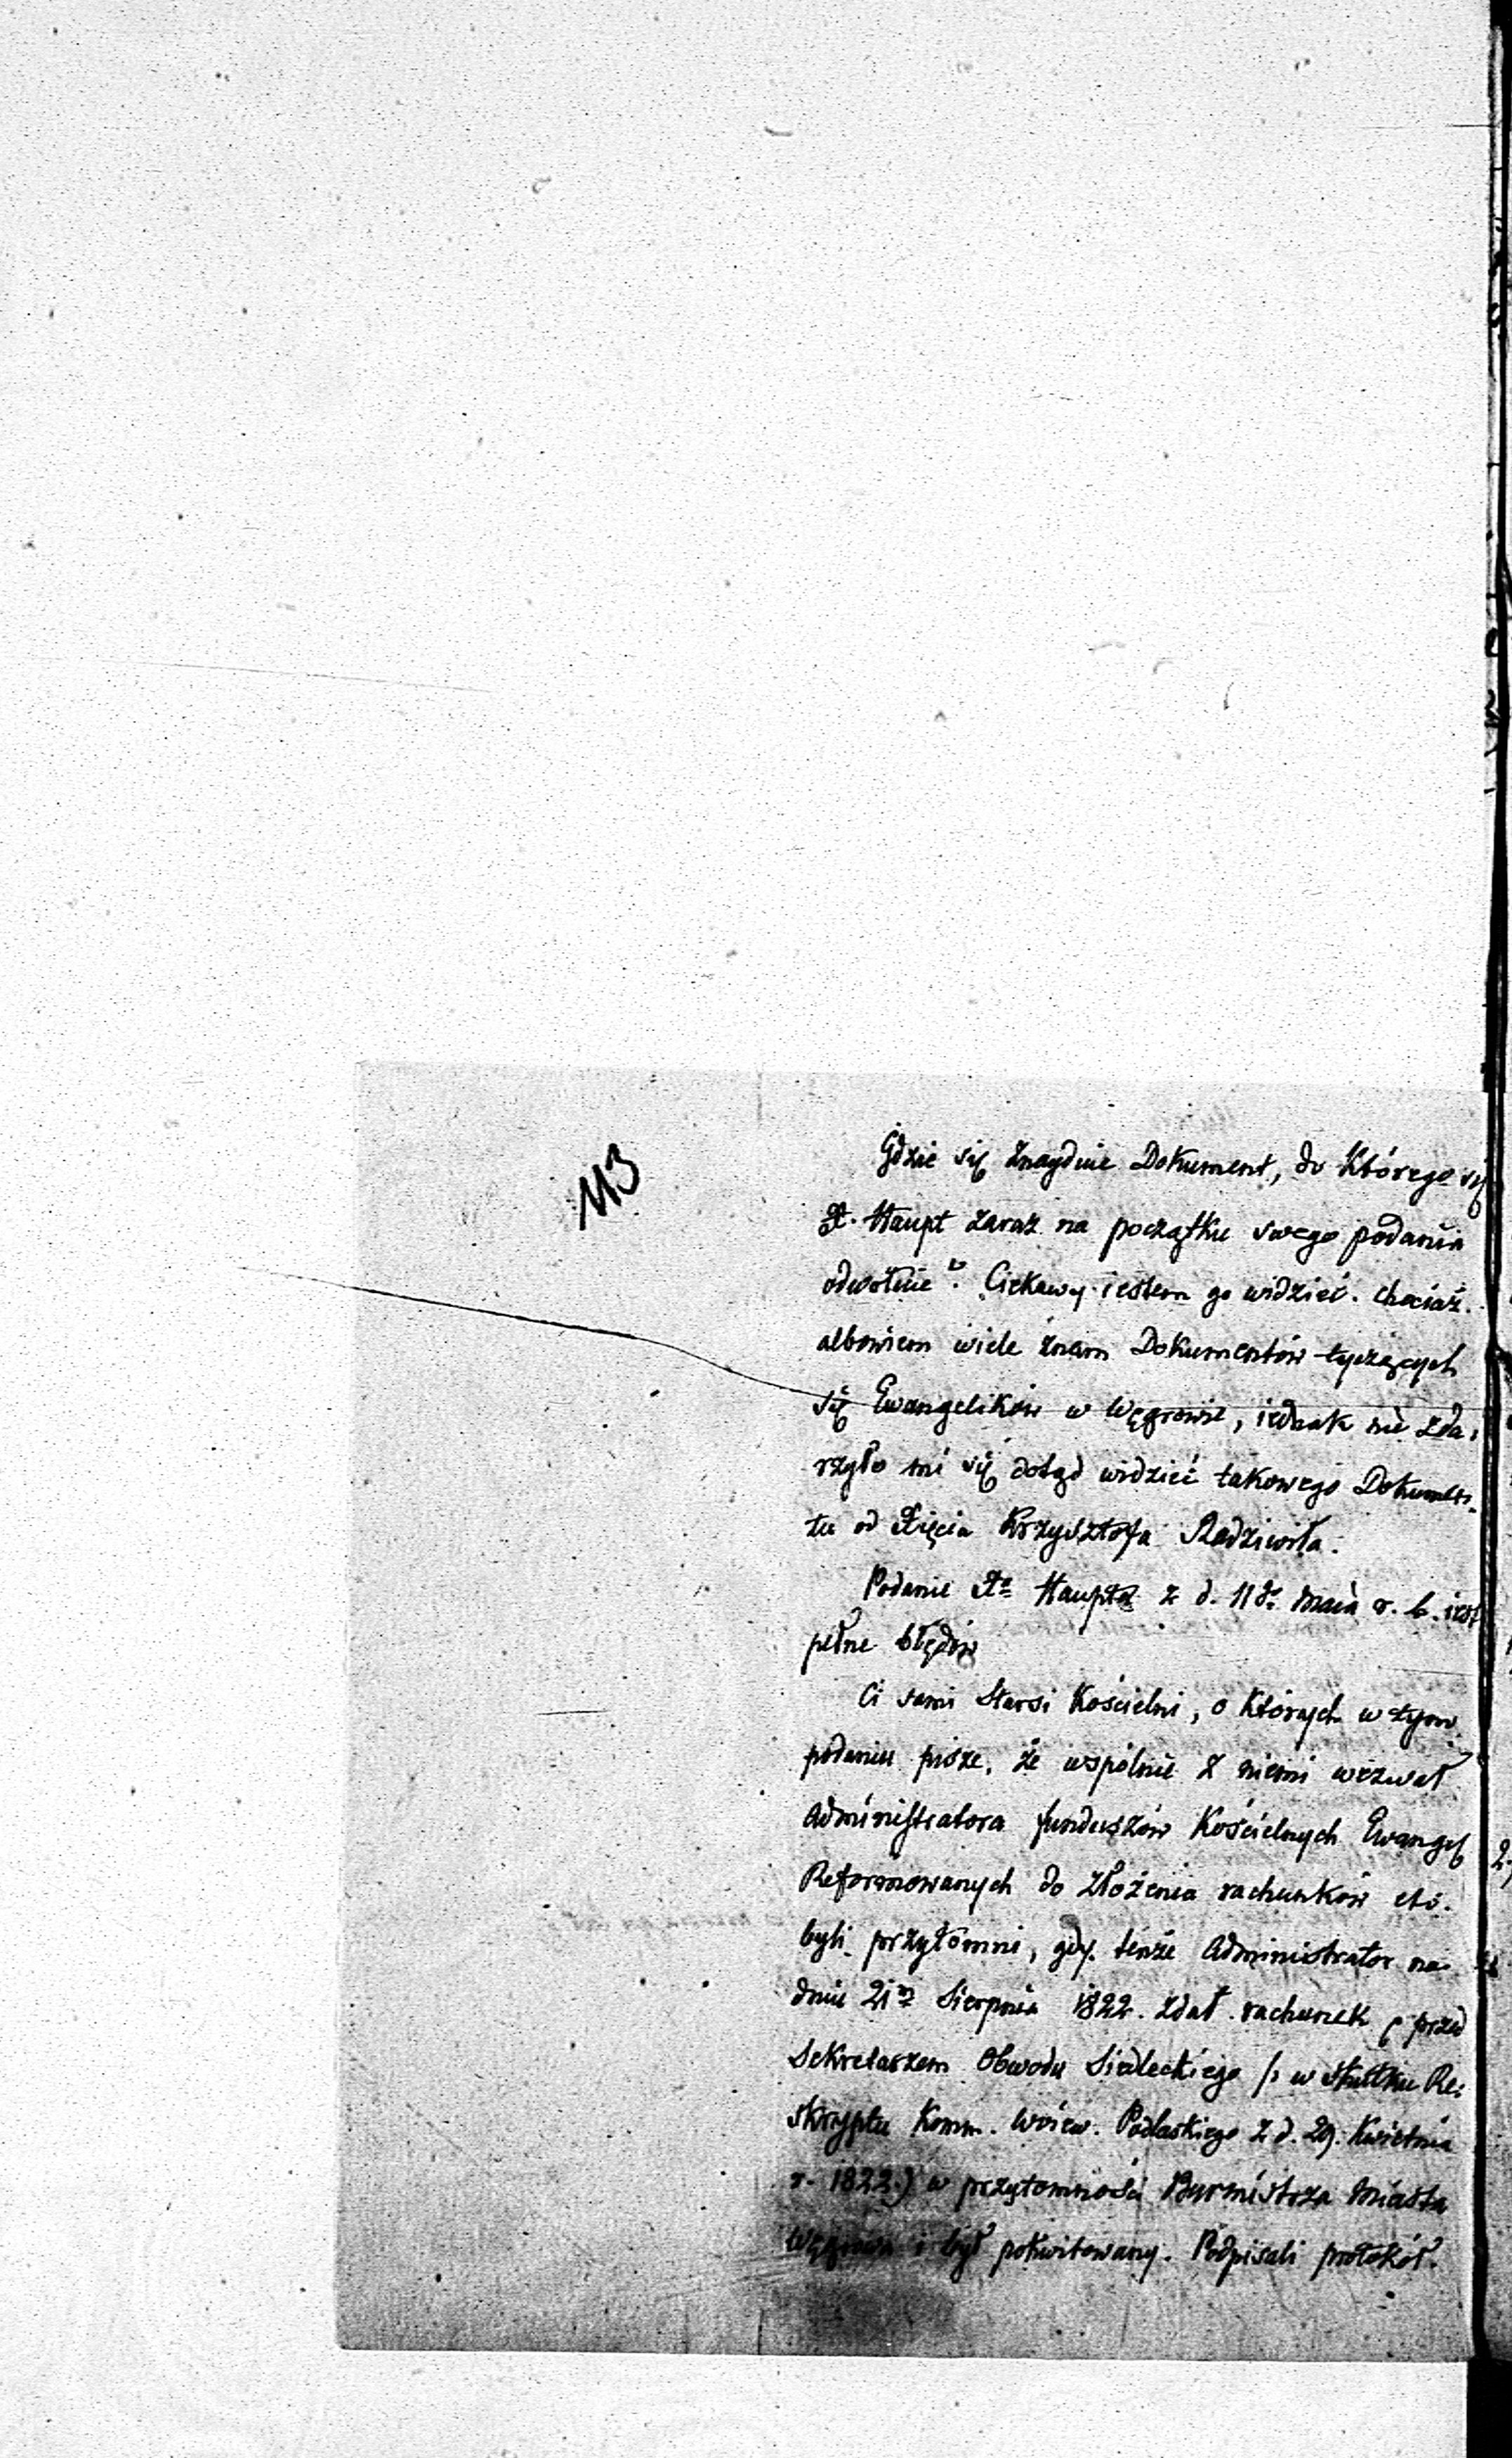 113
Gdzie się znayduie Dokument, do którego się
X. Haupt zaraz na początku swego podania
odwołuie? Ciekawy iestem go widzieć. chociaż
albowiem wiele znam Dokumentów tyczących
się Ewangelików w Węgrowie, iednak nie zda-
rzyło mi się dotąd widzieć takowego Dokumen-
tu od Xięcia Krzysztofa Radziwiła.
Podanie Xa Haupta z d. 11 maia r. b. iest
pełne błędów
Ci sami Starsi Kościelni, o których w tym
podaniu pisze, że wspólnie z niemi wezwał
Administratora funduszów Kościelnych Ewang.
Reformowanych do złożenia rachunków etc.
byli przytomni, gdy tenże Administrator na
dniu 21 Sierpnia 1822. zdał rachunek przed
Sekretarzem Obwodu Siedleckiego /: w skutku Re-
skryptu Komm. Woiew. Podlaskiego z d. 29. Kwietnia
r. 1822.) w przytomności Burmistrza Miasta
Węgrowa i był pokwitowany. Podpisali protokół.